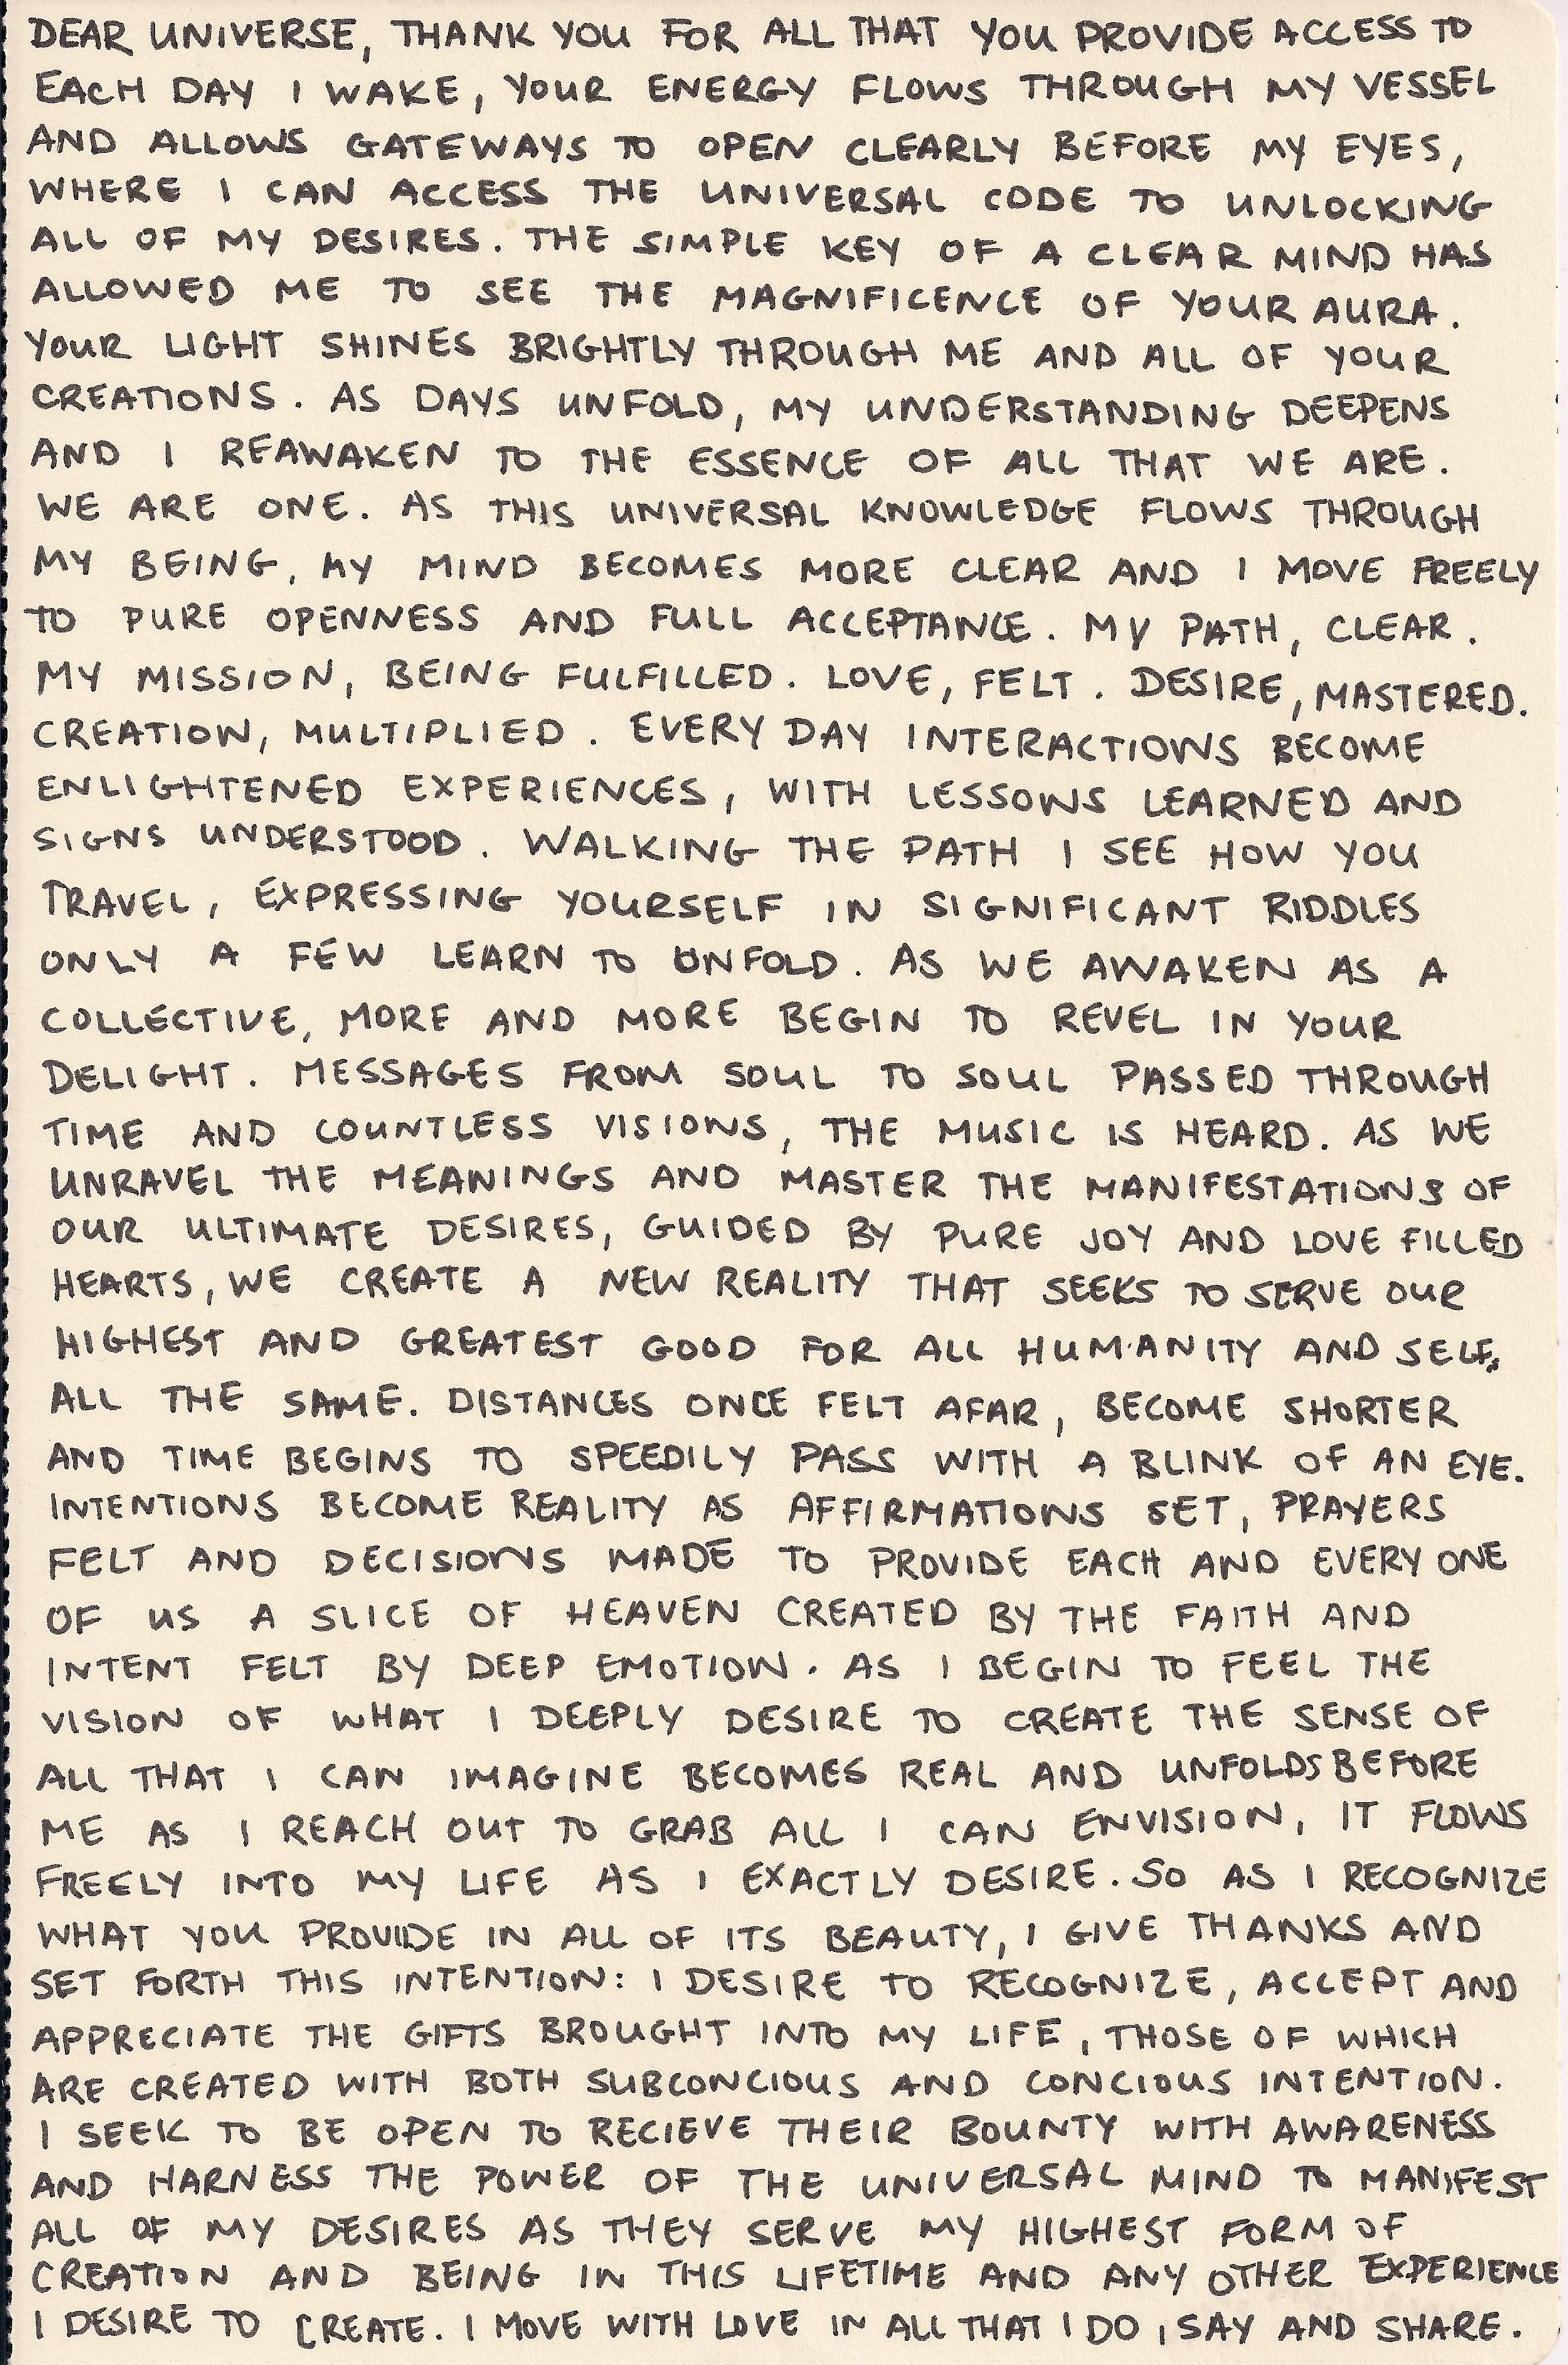 DEAR UNIVERSE, THANK YOU FOR ALL THAT YOU PROVIDE ACCESS TO
EACH DAY I WAKE, YOUR ENERGY FLOWS THROUGH MY VESSEL
AND ALLOWS GATEWAYS TO OPEN CLEARLY BEFORE MY EYES,
WHERE I CAN ACCESS THE UNIVERSAL CODE TO UNLOCKING
ALL OF MY DESIRES. THE SIMPLE KEY OF A CLEAR MIND HAS
ALLOWED ME TO SEE THE MAGNIFICENCE OF YOUR AURA.
YOUR LIGHT SHINES BRIGHTLY THROUGH ME AND ALL OF YOUR
CREATIONS. AS DAYS UNFOLD, MY UNDERSTANDING DEEPENS
AND I REAWAKEN TO THE ESSENCE OF ALL THAT WE ARE.
WE ARE ONE. AS THIS UNIVERSAL KNOWLEDGE FLOWS THROUGH
MY BEING, MY MIND BECOMES MORE CLEAR AND I MOVE FREELY
TO PURE OPENNESS AND FULL ACCEPTANCE. MY PATH, CLEAR.
MY MISSION, BEING FULFILLED. LOVE, FELT. DESIRE, MASTERED.
CREATION, MULTIPLIED. EVERY DAY INTERACTIONS BECOME
ENLIGHTENED EXPERIENCES, WITH LESSONS LEARNED AND
SIGNS UNDERSTOOD. WALKING THE PATH I SEE HOW YOU
TRAVEL, EXPRESSING YOURSELF IN SIGNIFICANT RIDDLES
ONLY A FEW LEARN TO UNFOLD. AS WE AWAKEN AS A
COLLECTIVE, MORE AND MORE BEGIN TO REVEL IN YOUR
DELIGHT. MESSAGES FROM SOUL TO SOUL PASSED THROUGH
TIME AND COUNTLESS VISIONS, THE MUSIC IS HEARD. AS WE
UNRAVEL THE MEANINGS AND MASTER THE MANIFESTATIONS OF
OUR ULTIMATE DESIRES, GUIDED BY PURE JOY AND LOVE FILLED
HEARTS, WE CREATE A NEW REALITY THAT SEEKS TO SERVE OUR
HIGHEST AND GREATEST GOOD FOR ALL HUMANITY AND SELF,
ALL THE SAME. DISTANCES ONCE FELT AFAR, BECOME SHORTER
AND TIME BEGINS TO SPEEDILY PASS WITH A BLINK OF AN EYE.
INTENTIONS BECOME REALITY AS AFFIRMATIONS SET, PRAYERS
FELT AND DECISIONS MADE TO PROVIDE EACH AND EVERY ONE
OF US A SLICE OF HEAVEN CREATED BY THE FAITH AND
INTENT FELT BY DEEP EMOTION. AS I BEGIN TO FEEL THE
VISION OF WHAT I DEEPLY DESIRE TO CREATE THE SENSE OF
ALL THAT I CAN IMAGINE BECOMES REAL AND UNFOLDS BEFORE
ME AS I REACH OUT TO GRAB ALL I CAN ENVISION, IT FLOWS
FREELY INTO MY LIFE AS I EXACTLY DESIRE. SO AS I RECOGNIZE
WHAT YOU PROVIDE IN ALL OF ITS BEAUTY, I GIVE THANKS AND
SET FORTH THIS INTENTION: I DESIRE TO RECOGNIZE, ACCEPT AND
APPRECIATE THE GIFTS BROUGHT INTO MY LIFE, THOSE OF WHICH
ARE CREATED WITH BOTH SUBCONCIOUS AND CONCIOUS INTENTION.
I SEEK TO BE OPEN TO RECIEVE THEIR BOUNTY WITH AWARENESS
AND HARNESS THE POWER OF THE UNIVERSAL MIND TO MANIFEST
ALL OF MY DESIRES AS THEY SERVE MY HIGHEST FORM OF
CREATION AND BEING IN THIS LIFETIME AND ANY OTHER EXPERIENCE
I DESIRE TO CREATE. I MOVE WITH LOVE IN ALL THAT I DO, SAY AND SHARE.